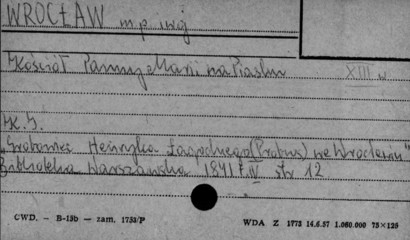 WROCŁAW m.p. woj
Kościół Panny Marii na Piasku XIII w
K. S.
"Grobowiec Henryka (Probus) we Wrocławiu"
Biblioteka Warszawska 1841 T. IV str 12
CWD. - B-15b - zam. 1753/P WDA Z 1773 14.6.57 1.000.000 75×125